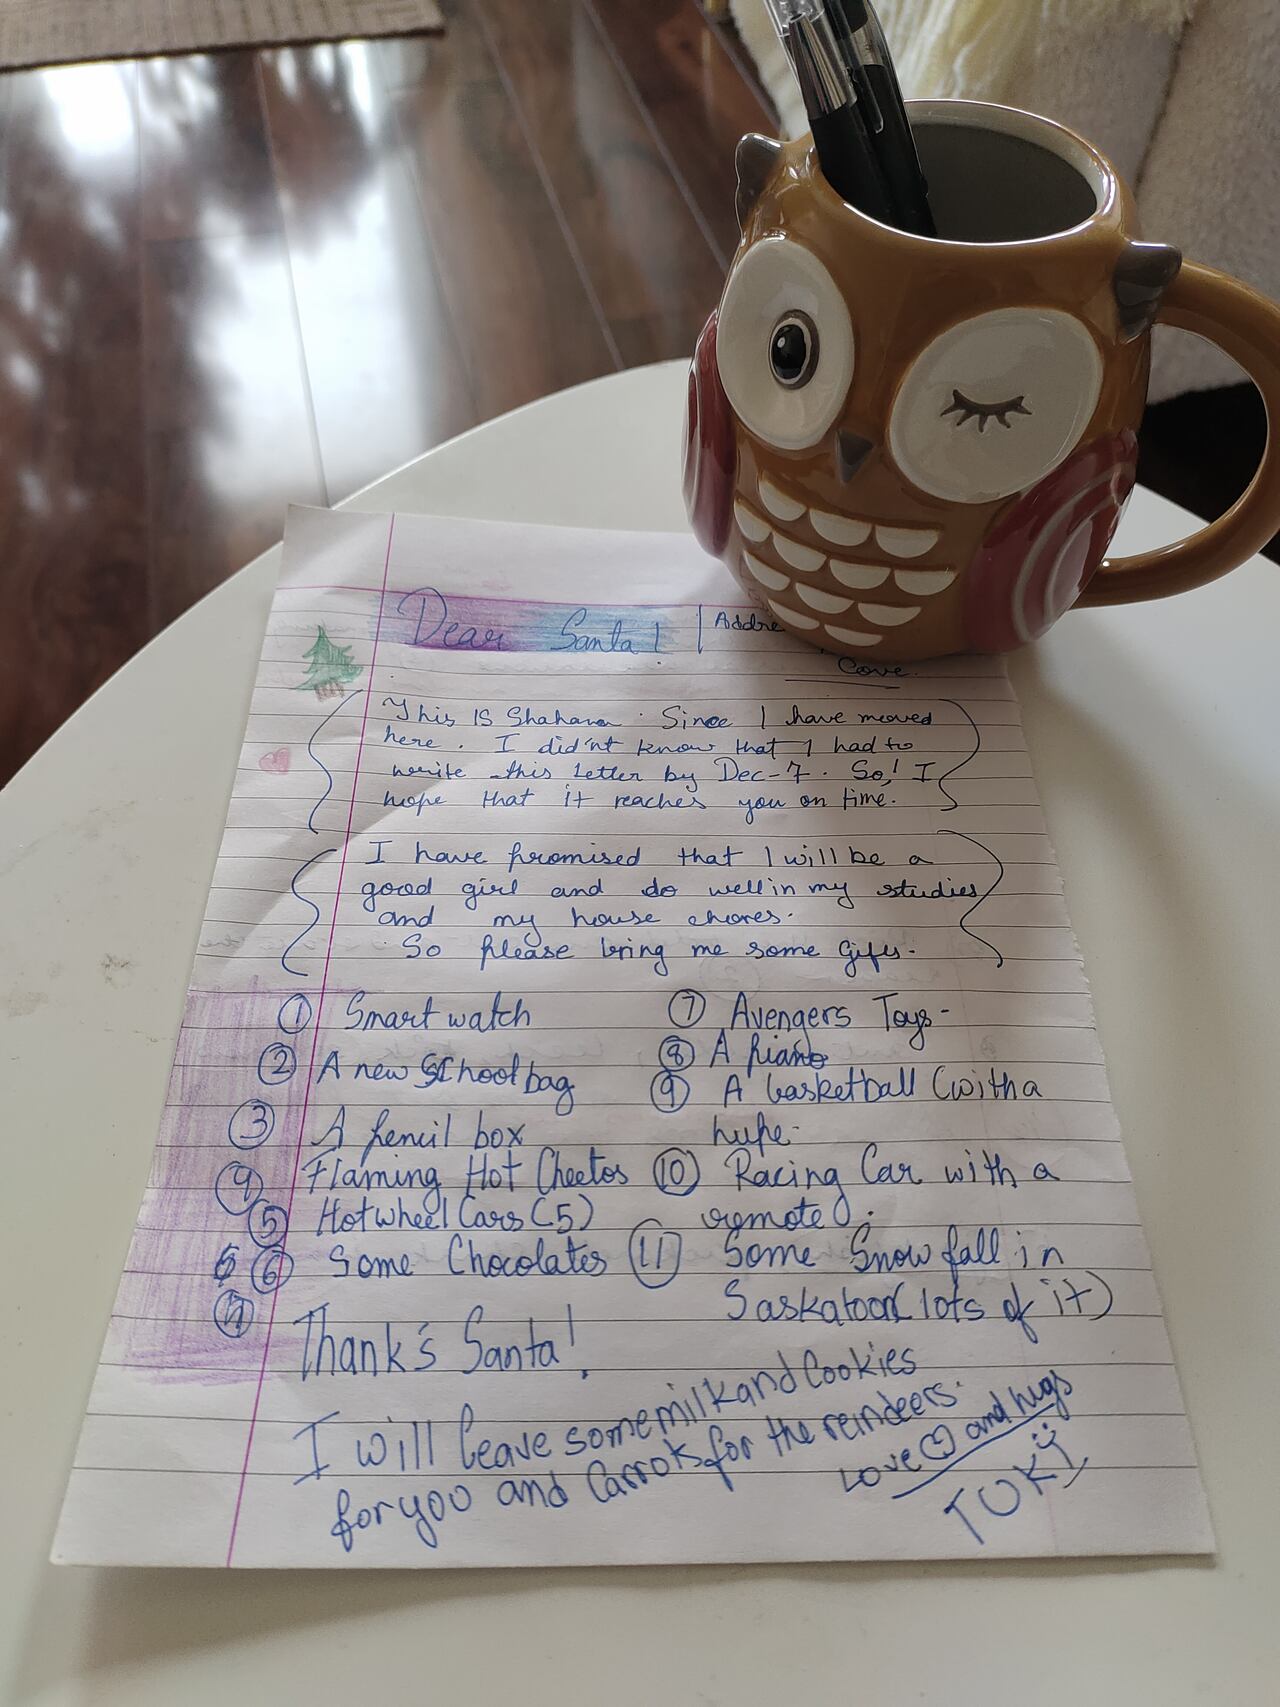 Dear Santa!
Addre
Cove.
This IS Shahana. Since I have moved
here. I did'nt know that I had to
write this letter by Dec-7. So! I
hope that it reaches you on time.
I have promised that I will be a
good girl and do well in my studies
and my house chores.
So please bring me some gifts.
① Smart watch
② A new School bag
③ A pencil box
④ Flaming Hot Cheetos
⑤ Hotwheel Cars (5)
⑥ Some Chocolates
⑦ Avengers Toys-
⑧ A piano
⑨ A basketball (with a
hupe-
⑩ Racing Car with a
remote.
⑪ Some Snow fall in
Saskatoon( lots of it)
Thank's Santa!
I will leave some milk and Cookies
for you and Carrots for the reindeers.
Love and hugs
TUKI